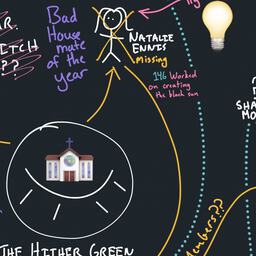 Bad
House
mate
of the
year
NATALIE
ENNIS
Missing
146 Worked
on creating
the black sun
R.
ITCH
??
SHA
MO
THE HITHER GREEN
Members??